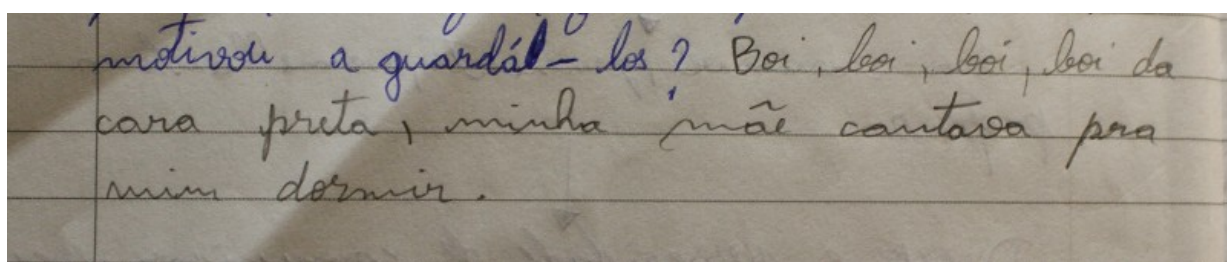 motivou a guardá-los? Boi, boi, boi, boi da
cara preta, minha mãe cantava pra
mim dormir.